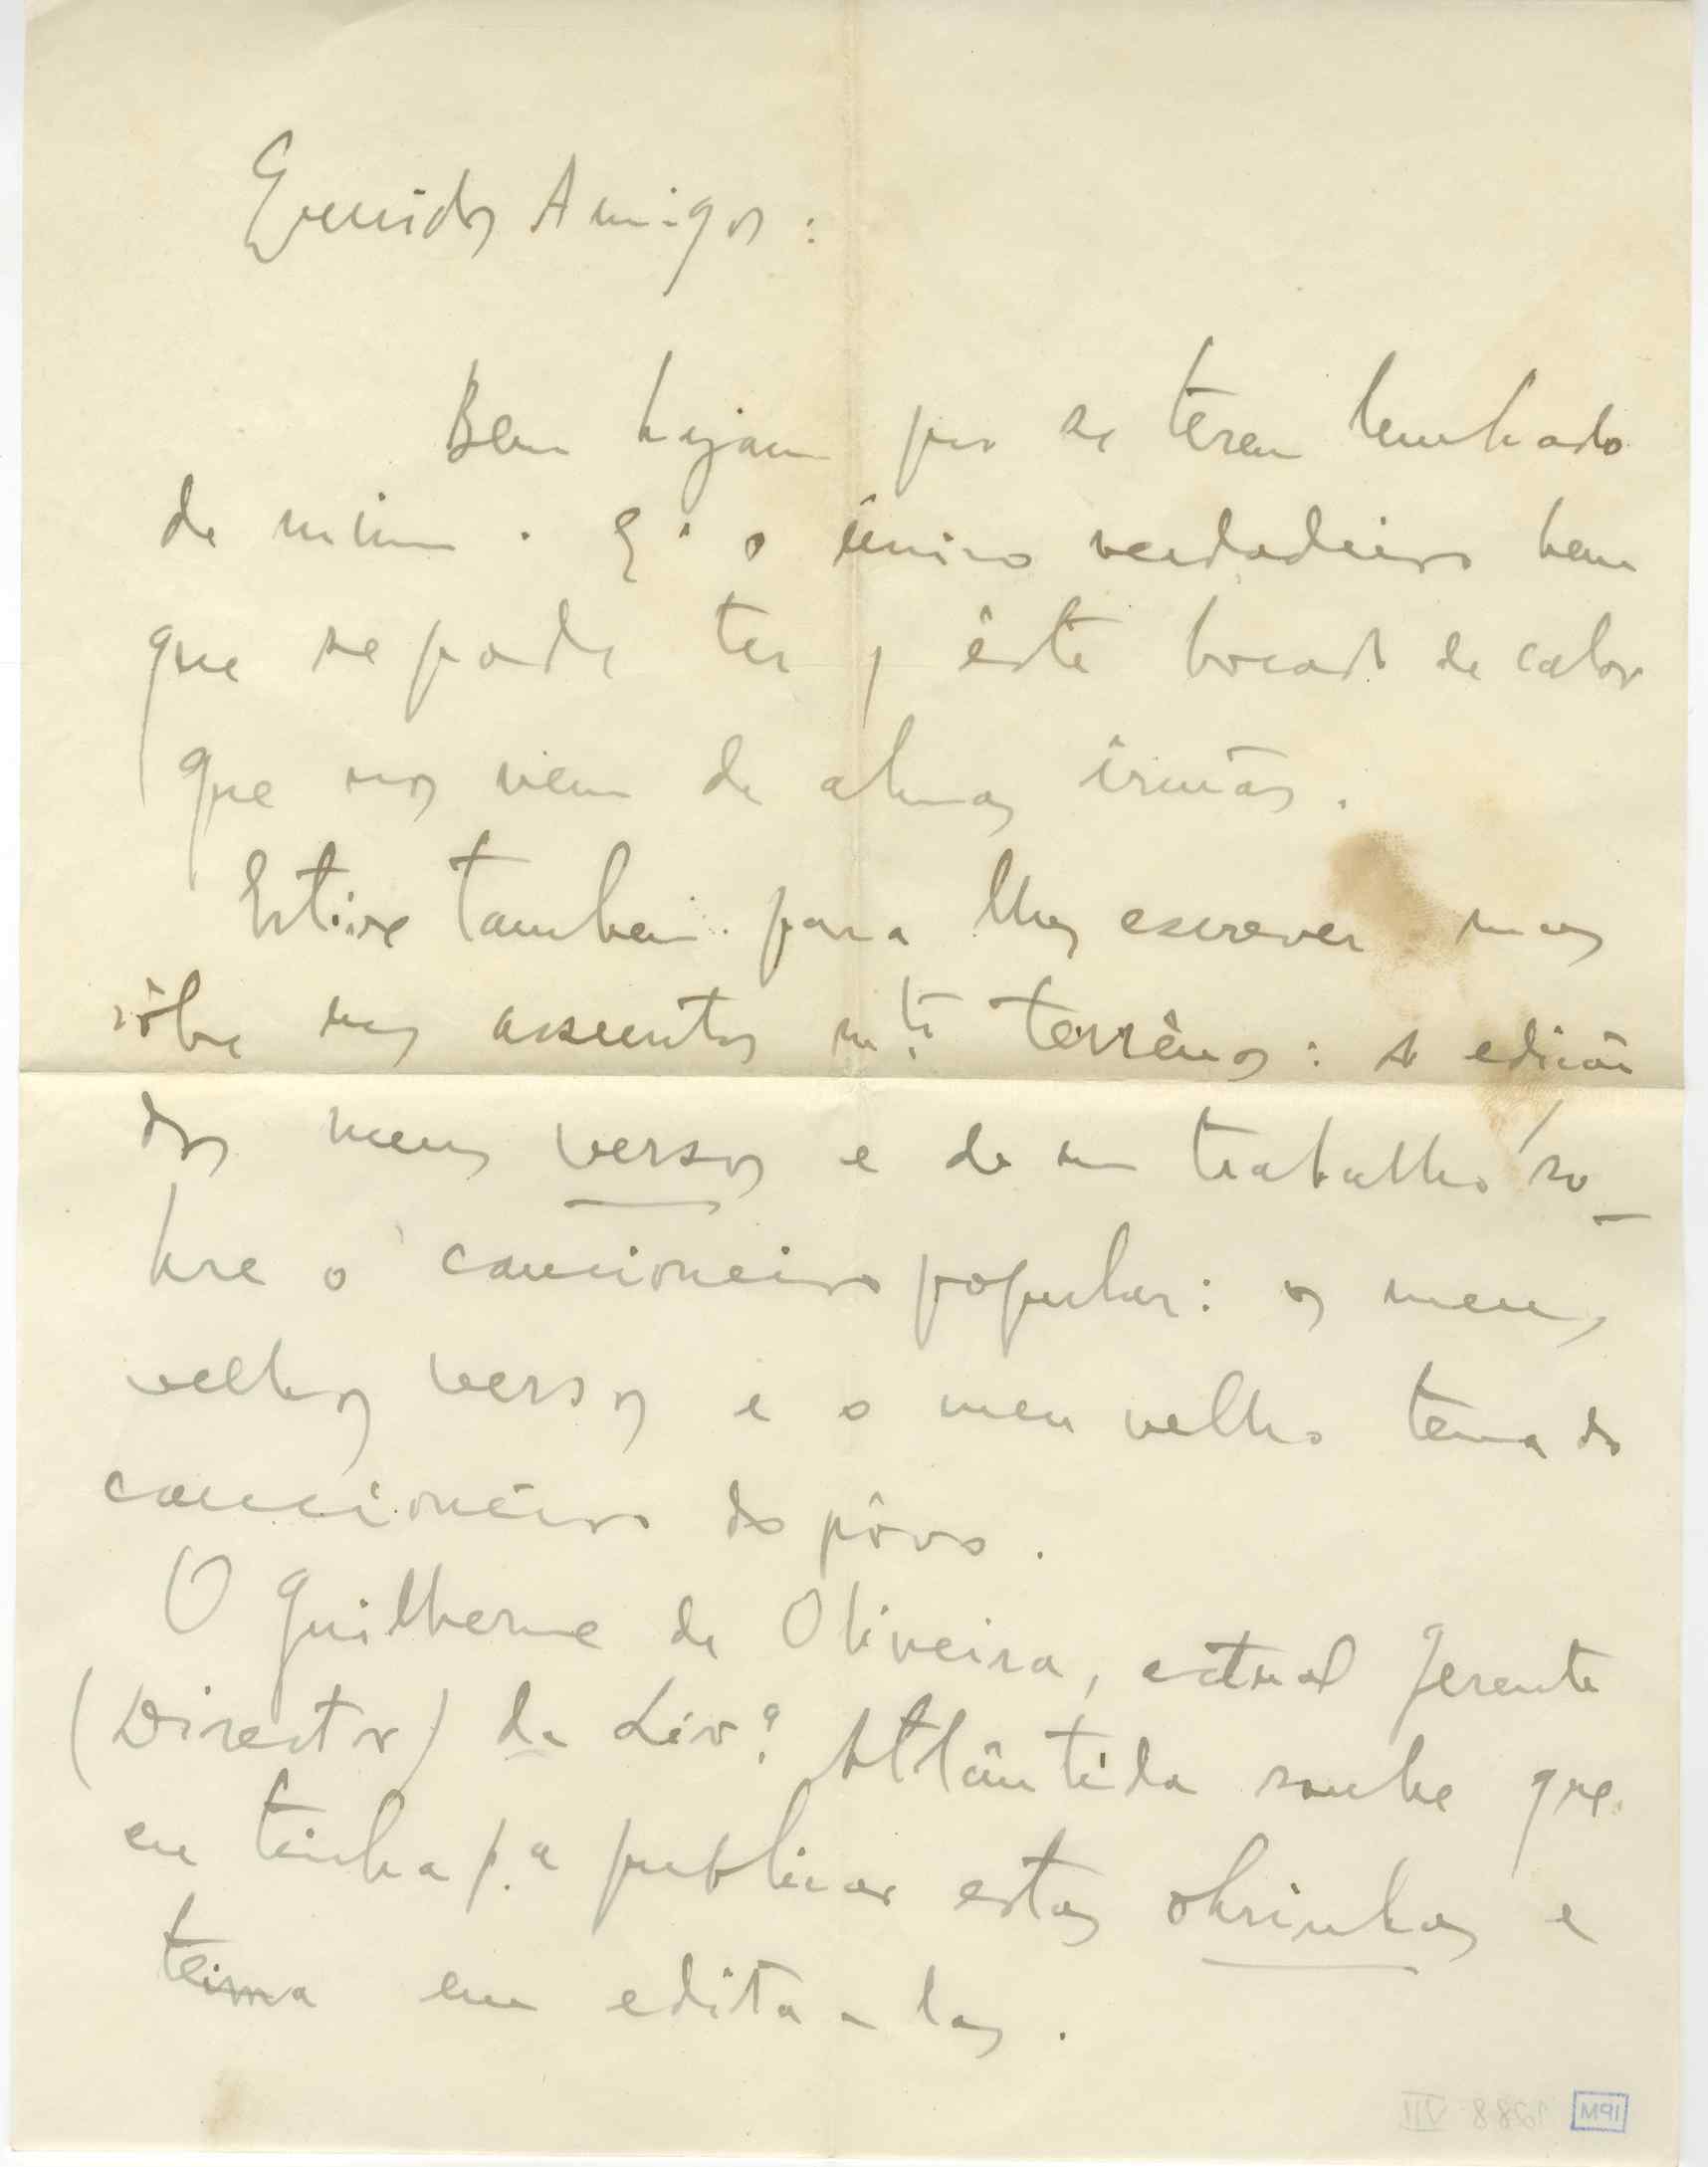 Queridos Amigos:
Bem hajam por se terem lembrado
de mim. E' o único verdadeiro bem
que se pode ter, êste bocado de calor
que nos vem de almas irmãs.
Estive tambem para lhes escrever mas
sôbre uns assuntos mto terrênos: A edicão
dos meus versos e de um trabalho so-
bre o cancioneiro popular: os meus
velhos versos e o meu velho tema do
cancioneiro do pôvo.
O Guilherme de Oliveira, actual Gerente
(Director) da Livª Atlântida soube que
eu tinha p.a publicar estas obrinhas e
teima em edita-las.
IPM 1288 VII